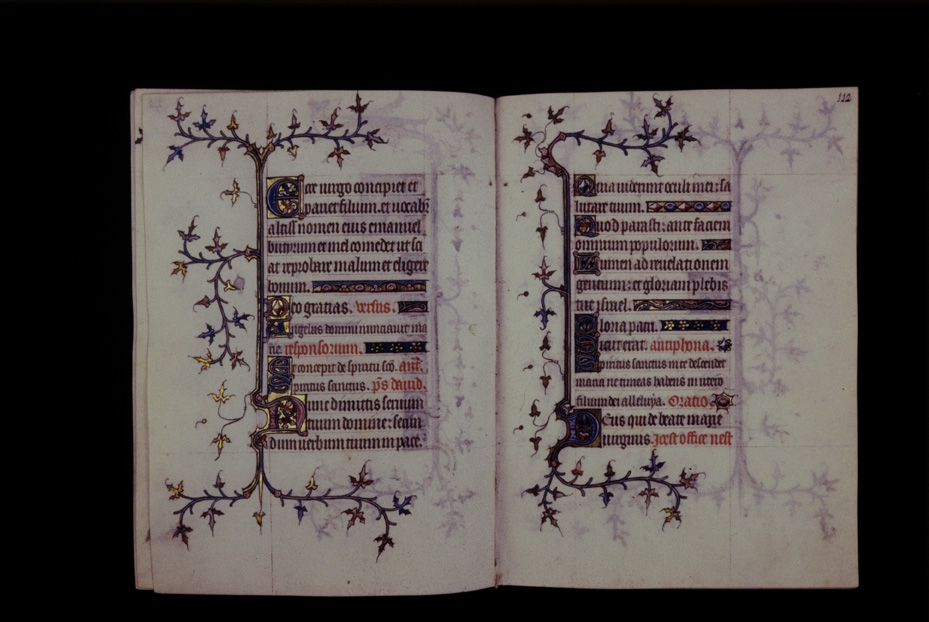 Ecce uirgo concipiet et
pariet filium. et uocabit
altiss nomen eius emanuel
butirum et mel comedet ut sci
at reprobare malum et eligere
bonum.
Deo gratias. versus.
Angelus domini nunciauit ma
rie. responsorium.
Et concepit de spiritu sco. ant.
Spiritus sanctus. ps dauid.
Nunc dimittis seruum
tuum domine: secun
dum uerbum tuum in pace.
112
Quia uiderunt oculi mei: sa
lutare tuum.
Quod parasti: ante faciem
omnium populorum.
Lumen ad reuelationem
gentium: et gloriam plebis
tue israel.
Gloria patri.
Sicut erat. antiphona.
Spiritus sanctus in te descendet
maria ne timeas habens in utero
filium dei alleluya. Oratio
Deus qui de beate marie
uirginis.